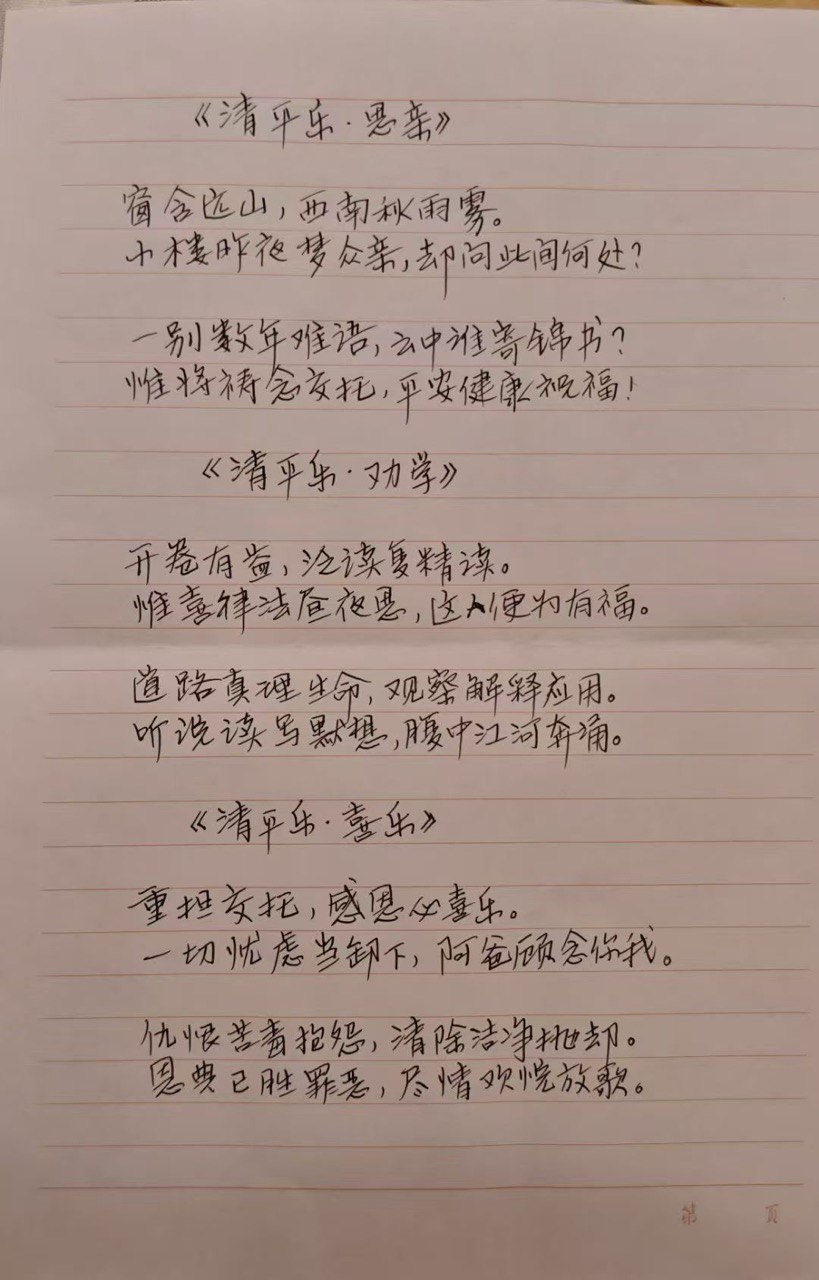 《清平乐·思亲》
窗含远山，西南秋雨雾。
小楼昨夜梦众亲，却问此间何处？
一别数年难语，云中谁寄锦书？
惟将祷念交托，平安健康祝福！
《清平乐·劝学》
开卷有益，泛读复精读。
惟喜律法昼夜思，这人便为有福。
道路真理生命，观察解释应用。
听说读写默想，腹中江河奔涌。
《清平乐·喜乐》
重担交托，感恩必喜乐。
一切忧虑当卸下，阿爸顾念你我。
仇恨苦毒抱怨，清除洁净抛却。
恩典已胜罪恶，尽情欢悦放歌。
第 页